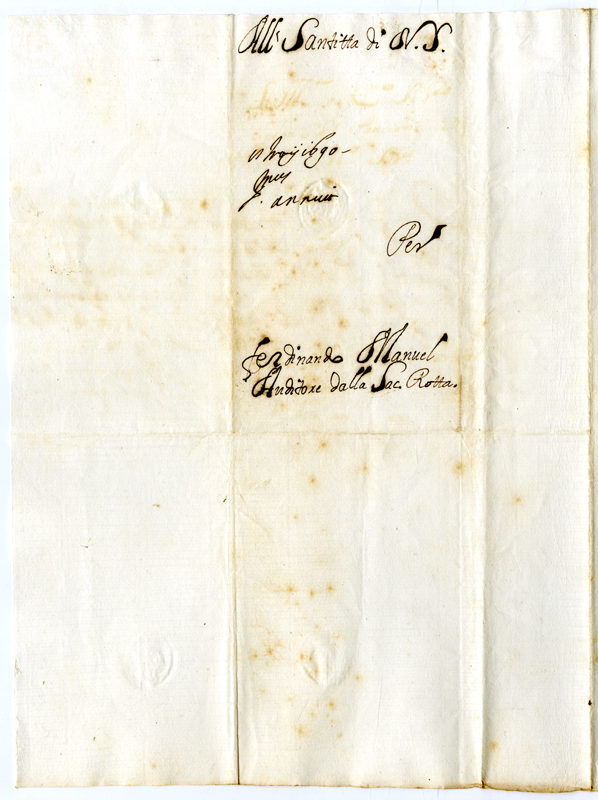 All.ᵃ Santitta di N. S.
1690
annuit
Per
Ferdinando Manuel
Auditore dalla Sac. Rotta.